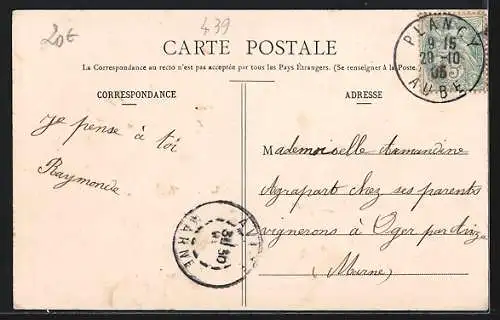 20€
439
CARTE POSTALE
La Correspondance au recto n'est pas acceptée par tous les Pays Étrangers. (Se renseigner à la Poste.)
PLANCY
9 15
29-10
05
AUBE
5
CORRESPONDANCE
ADRESSE
Je pense à toi
Raymonde
Mademoiselle Armandine
Agrapart chez ses parents
vignerons à Oger par Avize
(Marne)
30
MARNE